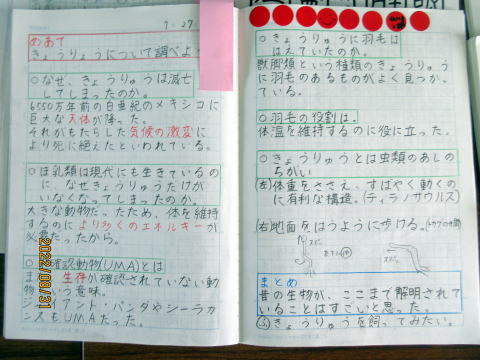 7-27
めあて
きょうりょうについて調べよう
○なぜ、きょうりゅうは滅亡
してしまったのか。
6550万年前の白亜紀のメキシコに
巨大な天体が降った。
それがもたらした気候の激変に
より死に絶えたといわれている。
○ほ乳類は現代にも生きているの
に、なぜきょうりゅうだけが
いなくなってしまったのか。
大きな動物だったため、体を維持
するのにより多くのエネルギーが
必要だったから。
○未確認動物(UMA)とは
まだ生存が確認されていない動
物という意味。
ジャイアント・パンダやシーラカ
ンスもUMAだった。
2022/08/31
○きょうりゅうに羽毛は
はえていたのか。
獣脚類という種類のきょうりゅう
に羽毛のあるものがよく見つか
ている。
○羽毛の役割は。
体温を維持するのに役に立った。
○きょうりゅうとは虫類のあしの
ちがい
(左)体重をささえ、すばやく動くの
に有利な構造。(ティラノサウルス)
(右)地面をはうように歩ける。
まとめ
昔の生物が、ここまで解明されて
いることはすごいと思った。
きょうりゅうを飼ってみたい。